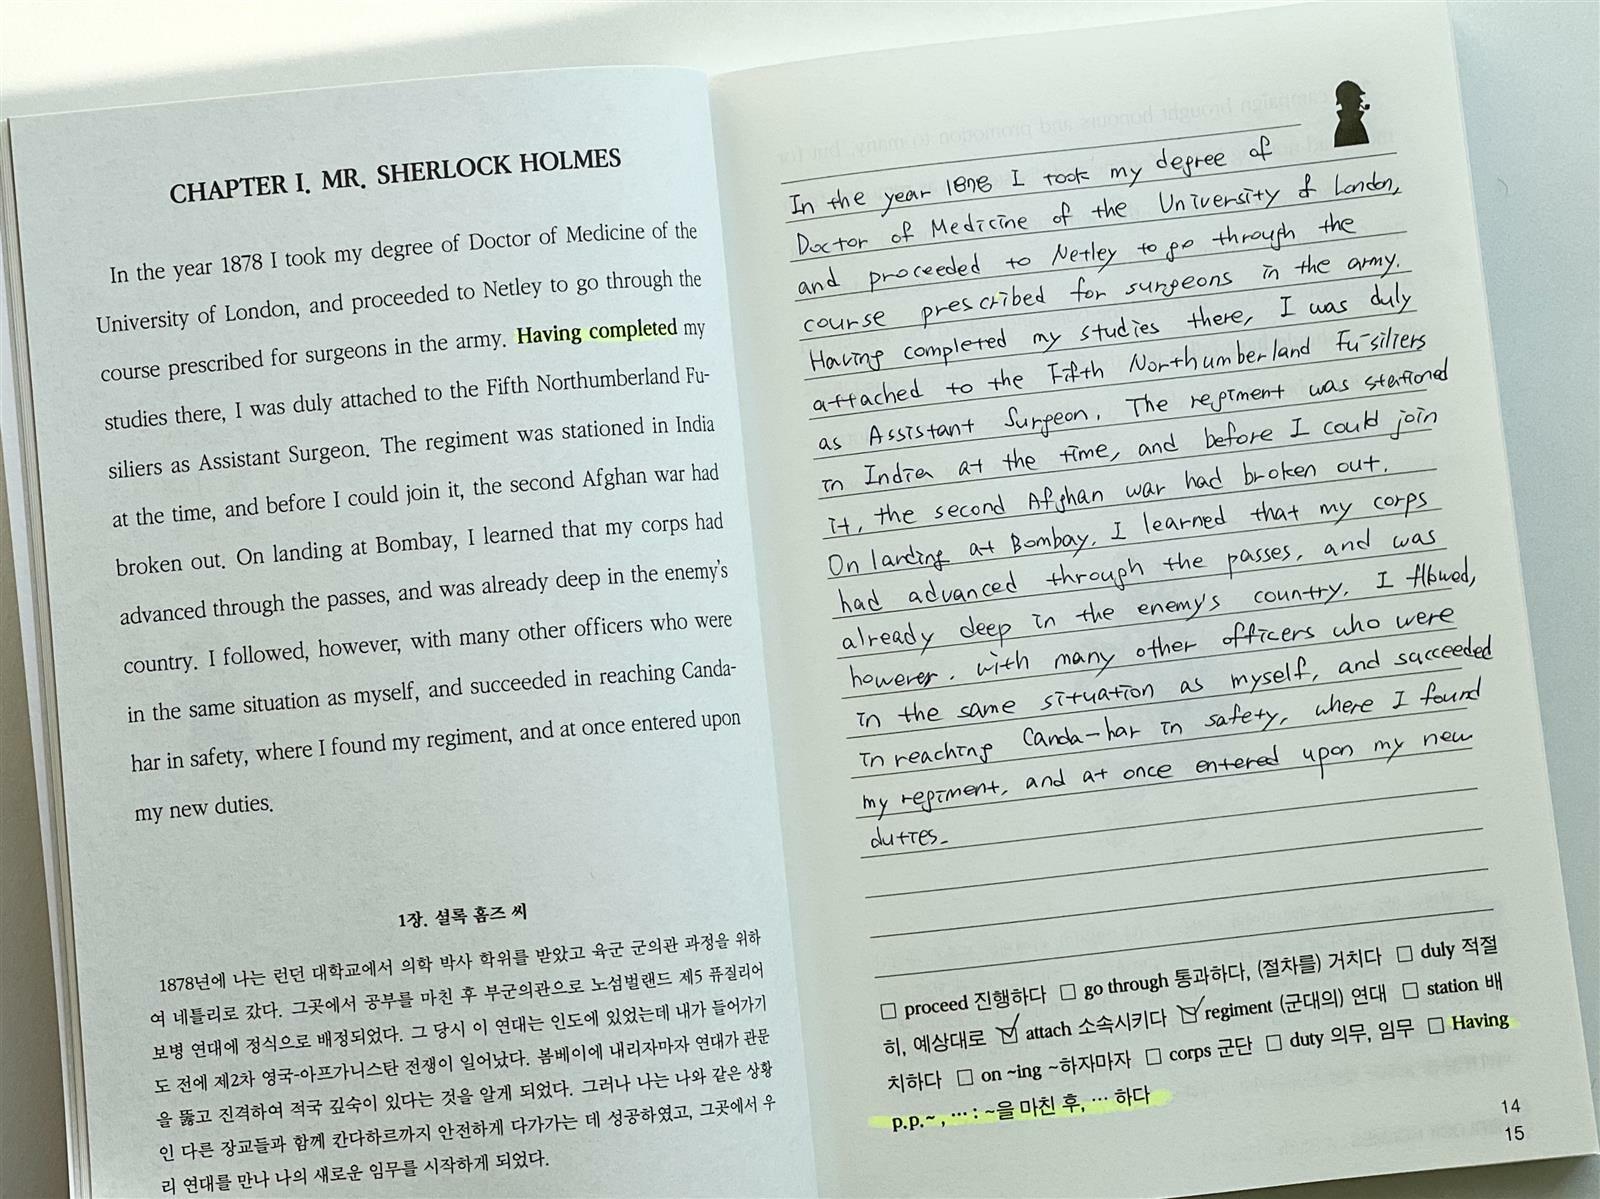 CHAPTER I. MR. SHERLOCK HOLMES
In the year 1878 I took my degree of Doctor of Medicine of the
University of London, and proceeded to Netley to go through the
course prescribed for surgeons in the army. Having completed my
studies there, I was duly attached to the Fifth Northumberland Fu-
siliers as Assistant Surgeon. The regiment was stationed in India
at the time, and before I could join it, the second Afghan war had
broken out. On landing at Bombay, I learned that my corps had
advanced through the passes, and was already deep in the enemy's
country. I followed, however, with many other officers who were
in the same situation as myself, and succeeded in reaching Canda-
har in safety, where I found my regiment, and at once entered upon
my new duties.
1장. 셜록 홈즈 씨
1878년에 나는 런던 대학교에서 의학 박사 학위를 받았고 육군 군의관 과정을 위하
여 네틀리로 갔다. 그곳에서 공부를 마친 후 부군의관으로 노섬벌랜드 제5 퓨질리어
보병 연대에 정식으로 배정되었다. 그 당시 이 연대는 인도에 있었는데 내가 들어가기
도 전에 제2차 영국-아프가니스탄 전쟁이 일어났다. 봄베이에 내리자마자 연대가 관문
을 뚫고 진격하여 적국 깊숙이 있다는 것을 알게 되었다. 그러나 나는 나와 같은 상황
인 다른 장교들과 함께 칸다하르까지 안전하게 다가가는 데 성공하였고, 그곳에서 우
리 연대를 만나 나의 새로운 임무를 시작하게 되었다.
In the year 1878 I took my degree of
Doctor of Medicine of the University of London,
and proceeded to Netley to go through the
course prescribed for surgeons in the army.
Having completed my studies there, I was duly
attached to the Fifth Northumberland Fu-siliers
as Assistant Surgeon. The regiment was stationed
in India at the time, and before I could join
it, the second Afghan war had broken out.
On landing at Bombay, I learned that my corps
had advanced through the passes, and was
already deep in the enemy's country. I fllowed,
however, with many other officers who were
in the same situation as myself, and succeeded
in reaching Canda-har in safety, where I found
my regiment, and at once entered upon my new
duties.
□ proceed 진행하다 □ go through 통과하다, (절차를) 거치다 □ duly 적절
히, 예상대로 ☑ attach 소속시키다 ☑ regiment (군대의) 연대 □ station 배
치하다 □ on ~ing ~하자마자 □ corps 군단 □ duty 의무, 임무 □ Having
p.p.~, … : ~을 마친 후, … 하다
14
15